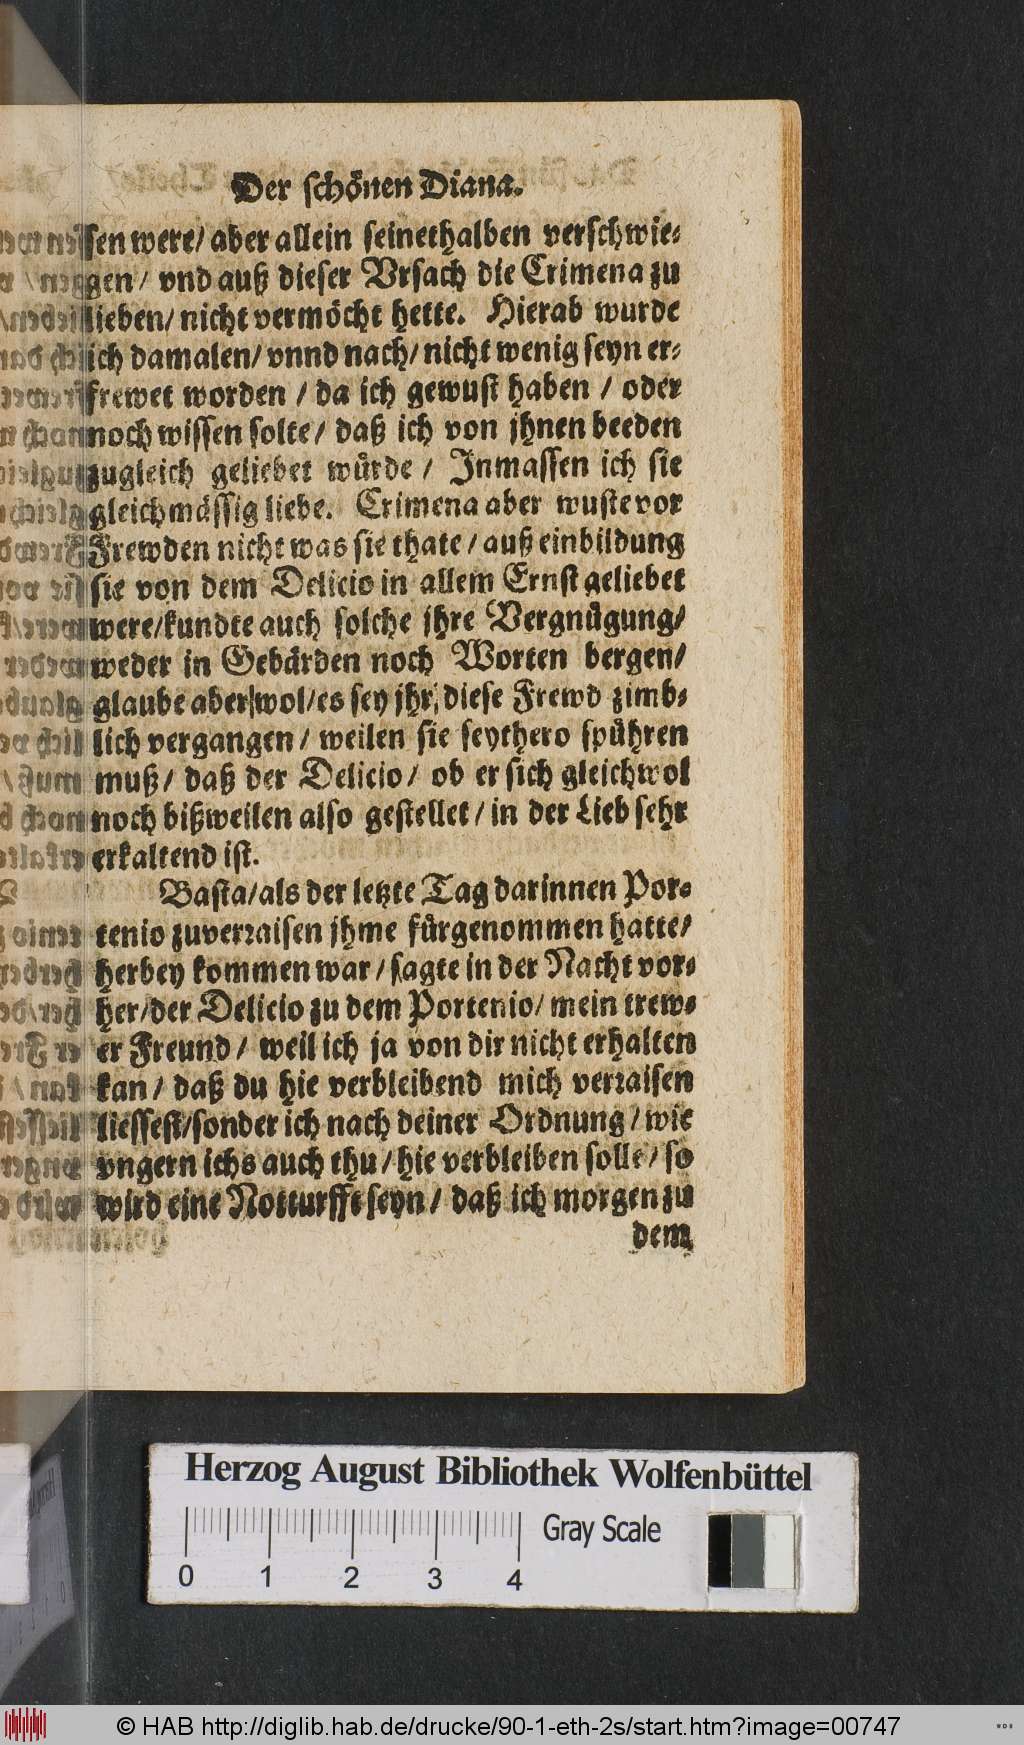 Der schönen Diana.
sen were/ aber allein seinethalben verschwie-
gen/ vnd auß dieser Vrsach die Crimena zu
lieben/ nicht vermöcht hette. Hierab wurde
ich damalen/ vnnd nach/ nicht wenig seyn er-
frewet worden / da ich gewust haben / oder
noch wissen solte/ daß ich von jhnen beeden
zugleich geliebet würde / Inmassen ich sie
gleichmässig liebe. Crimena aber wuste vor
Frewden nicht was sie thate / auß einbildung
sie von dem Delicio in allem Ernst geliebet
were/ kundte auch solche jhre Vergnügung/
weder in Gebärden noch Worten bergen/
glaube aber wol/ es sey jhr diese Frewd zimb-
lich vergangen / weilen sie seythero spühren
muß/ daß der Delicio/ ob er sich gleichwol
noch bißweilen also gestellet / in der Lieb sehr
erkaltend ist.
Basta/ als der letzte Tag darinnen Por-
tenio zuverraisen jhme fürgenommen hatte/
herbey kommen war / sagte in der Nacht vor-
her/ der Delicio zu dem Portenio/ mein trew-
er Freund / weil ich ja von dir nicht erhalten
kan / daß du hie verbleibend mich verraisen
liessest/ sonder ich nach deiner Ordnung / wie
vngern ichs auch thu / hie verbleiben solle/ so
wird eine Notturfft seyn / daß ich morgen zu
dem
Herzog August Bibliothek Wolfenbüttel
Gray Scale
0 1 2 3 4
© HAB http://diglib.hab.de/drucke/90-1-eth-2s/start.htm?image=00747